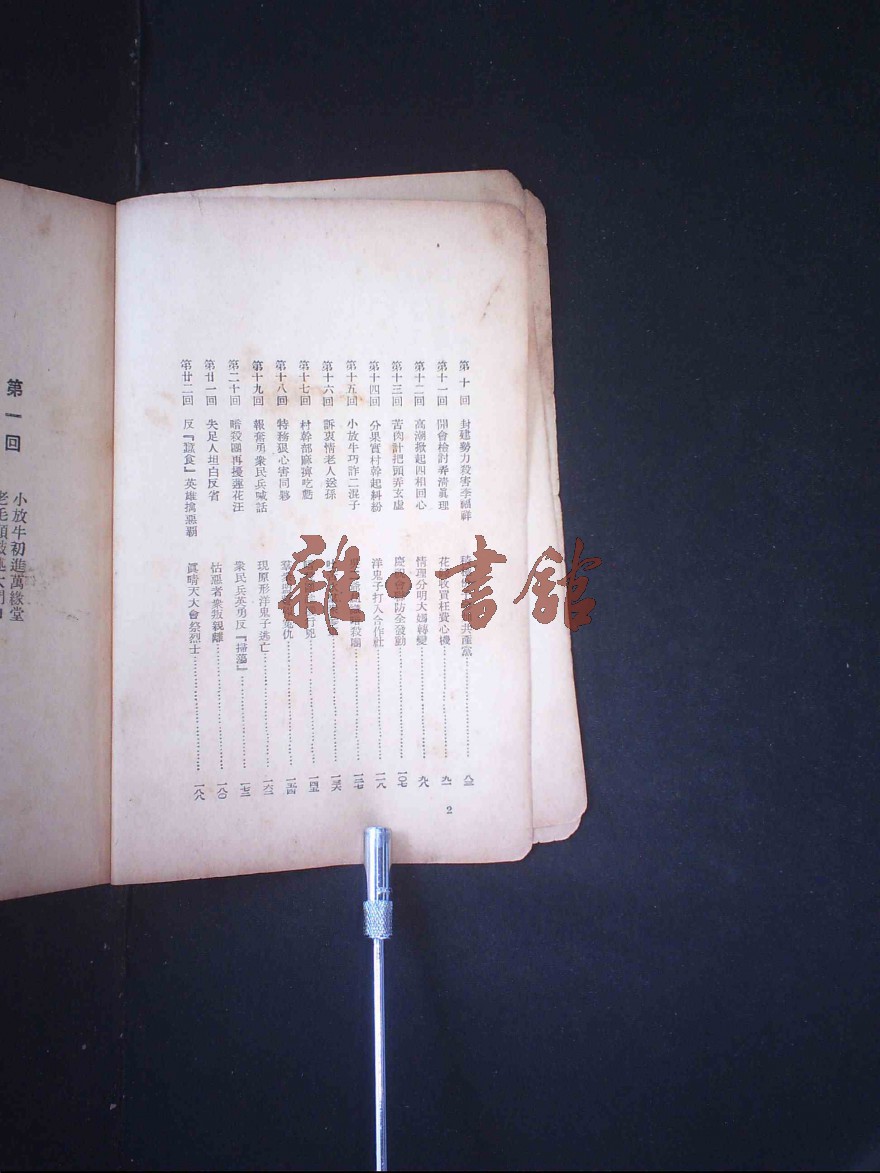 第十回 封建勢力殺害李福祥 共產黨 八三
第十一回 開會檢討弄清眞理 花 收買枉費心機 九一
第十二回 高潮掀起四相回心 情理分明大娘轉變 九八
第十三回 苦肉計把頭弄玄虛 慶 防全發動 一〇七
第十四回 分果實村幹起糾紛 洋鬼子打入合作社 一一八
第十五回 小放牛巧詐二混子 殺團 一二七
第十六回 訴衷情老人送孫 一三六
第十七回 村幹部麻痹吃虧 行兇 一四五
第十八回 特務狠心害同夥 仇 一五四
第十九回 報奮勇衆民兵喊話 現原形洋鬼子逃亡 一六二
第二十回 暗殺團再擾蓮花汪 衆民兵英勇反『掃蕩』 一七二
第廿一回 失足人坦白反省 怙惡者衆叛親離 一八〇
第廿二回 反『蠶食』英雄擒惡霸 眞晴天大會祭烈士 一八八
2
第一回
小放牛初進萬緣堂
雜·書館